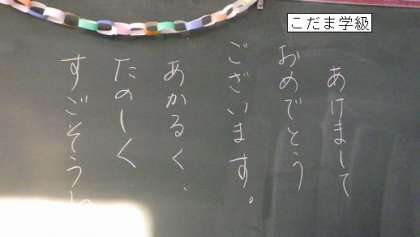 こだま学級
あけまして
おめでとう
ございます。
あかるく、
たのしく
すごそうね